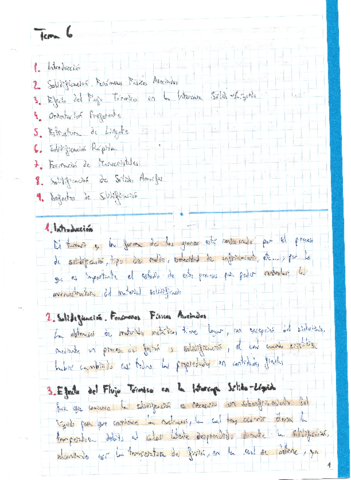 Tema 6
1. Introducción
2. Solidificación. Fenómenos Físicos Asociados
3. Efecto del Flujo Térmico en la Intercara Sólido-Líquido
4. Orientación Preferente
5. Estructura de Lingote
6. Solidificación Rápida
7. Formación de Monocristales
8. Solidificación de Sólidos Amorfos
9. Defectos de Solidificación
1. Introducción
El tamaño y la forma de los granos está por el proceso
de solidificación, tipo de molde, velocidad de enfriamiento, etc..., por lo
que es importante el estudio de este proceso para poder controlar la
microestructura del material solidificado
2. Solidificación. Fenómenos Físicos Asociados
La obtención de materiales metálicos tiene lugar, con excepción del
mediante un proceso de fusión y solidificación, el cual
las propiedades
3. Efecto del Flujo Térmico en la Intercara Sólido-Líquido
Para que comience la solidificación es necesario un subenfriamiento del
líquido para que comience la nucleación, la cual
temperatura debido al calor latente desprendido durante la solidificación,
alcanzando así la temperatura de fusión, en la cual se obtiene, ya
1